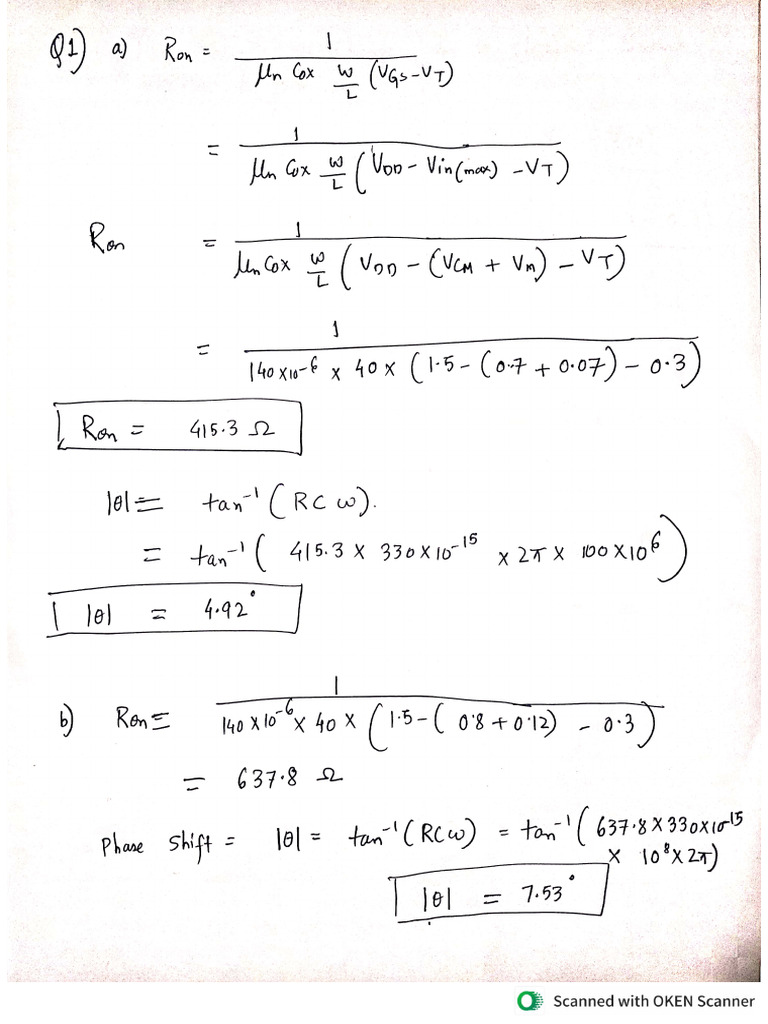 Q1) a) Ron = 1 / (μn Cox W/L (VGS-VT))
= 1 / (μn Cox W/L (VDD - Vin(max) - VT))
Ron = 1 / (μn Cox W/L (VDD - (VCM + VM) - VT))
= 1 / (140×10-6 × 40 × (1.5 - (0.7 + 0.07) - 0.3))
Ron = 415.3 Ω
|θ| = tan-1 (RCω).
= tan-1 (415.3 × 330×10-15 × 2π × 100×106)
|θ| = 4.92°
b) Ron = 1 / (140×10-6 × 40 × (1.5 - (0.8 + 0.12) - 0.3))
= 637.8 Ω
Phase shift = |θ| = tan-1 (RCω) = tan-1 (637.8×330×10-15
× 108×2π)
|θ| = 7.53°
Scanned with OKEN Scanner